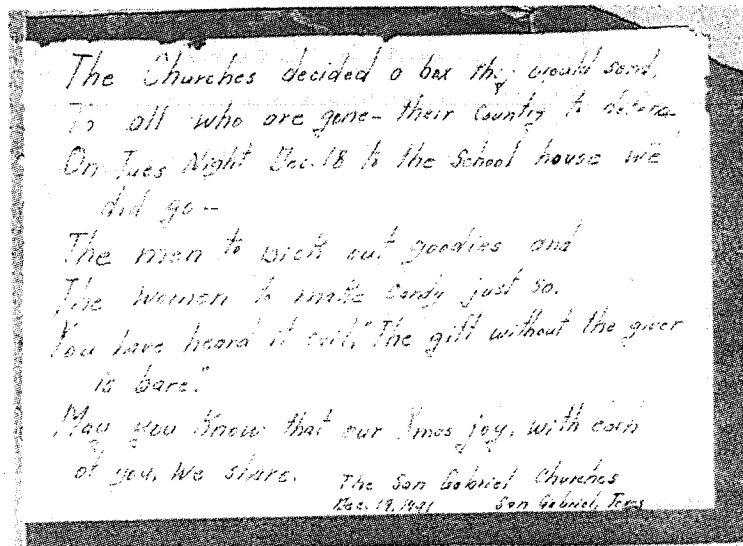 The Churches decided a box they would send,
To all who are gone - their Country to defend
On Tues Night Dec. 18 to the School house we
did go -
The men to pick out goodies and
The women to make candy just so.
You have heard it said, "The gift without the giver
is bare."
May you know that our Xmas joy, with each
of you, we share.
The San Gabriel Churches
Dec. 19, 1941 San Gabriel, Texas